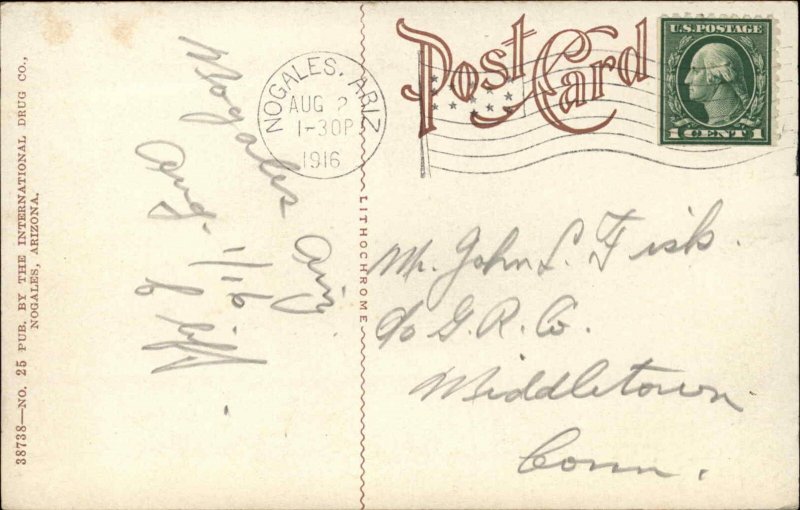 Post Card
U.S. POSTAGE
1 CENT 1
NOGALES, ARIZ
AUG 2
1-30P
1916
38738—NO. 25 PUB. BY THE INTERNATIONAL DRUG CO.,
NOGALES, ARIZONA.
LITHOCHROME
Nogales Ariz
Aug. 1/16
Mr. John L. Fisk.
c/o G. R. Co.
Middletown
Conn.